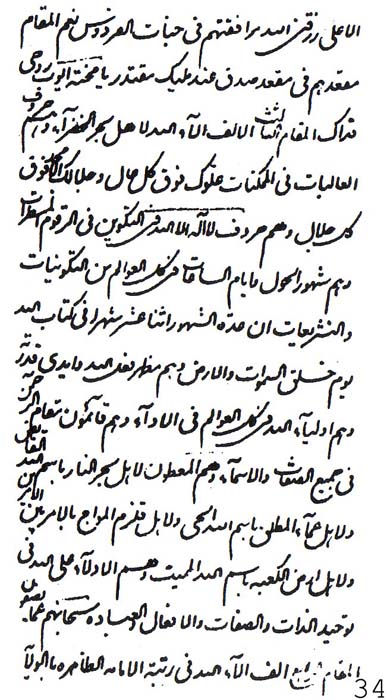 الاعلی رزقنی الله مرافقتهم فی جنات الفردوس نعم المقام
مقعدهم فی مقعد صدق عند ملیک مقتدر یا محنة الیوت روحی
فداک المقام الثالث الالف الآء الله لاهل بحر الخضرآء وهم حروف
العالیات فی الممکنات علوک فوق کل حال وجلالک فوق
کل جلال وهم حروف لااله الا الله فی التکوین فی الرقوم المسطرات
وهم شهور الحول وایام الساقات فی کل العوالم من التکوینیات
والتشریعات ان عدة الشهور اثنا عشر شهرا فی کتاب الله
یوم خلق السموات والارض وهم مظهر نفس الله وایدی قدرته
وهم اولیآء الله فی کل العوالم فی الادآء وهم قائمون مقام الرحمن
فی جمیع الصفات والاسمآء وهم المعطون لاهل بحر النار باسم الله القابض
ولاهل عمآء المطلق باسم الله الحی ولاهل قلزم المواج بالامر بین الامرین
ولاهل ارض الکعبه باسم الله الممیت وهم الادلآء علی الله فی
توحید الذات والصفات والافعال والعباده سبحانهم عما یصفون
المقام الرابع الف الآء الله فی رتبة الامامه الظاهره بالولآء
34